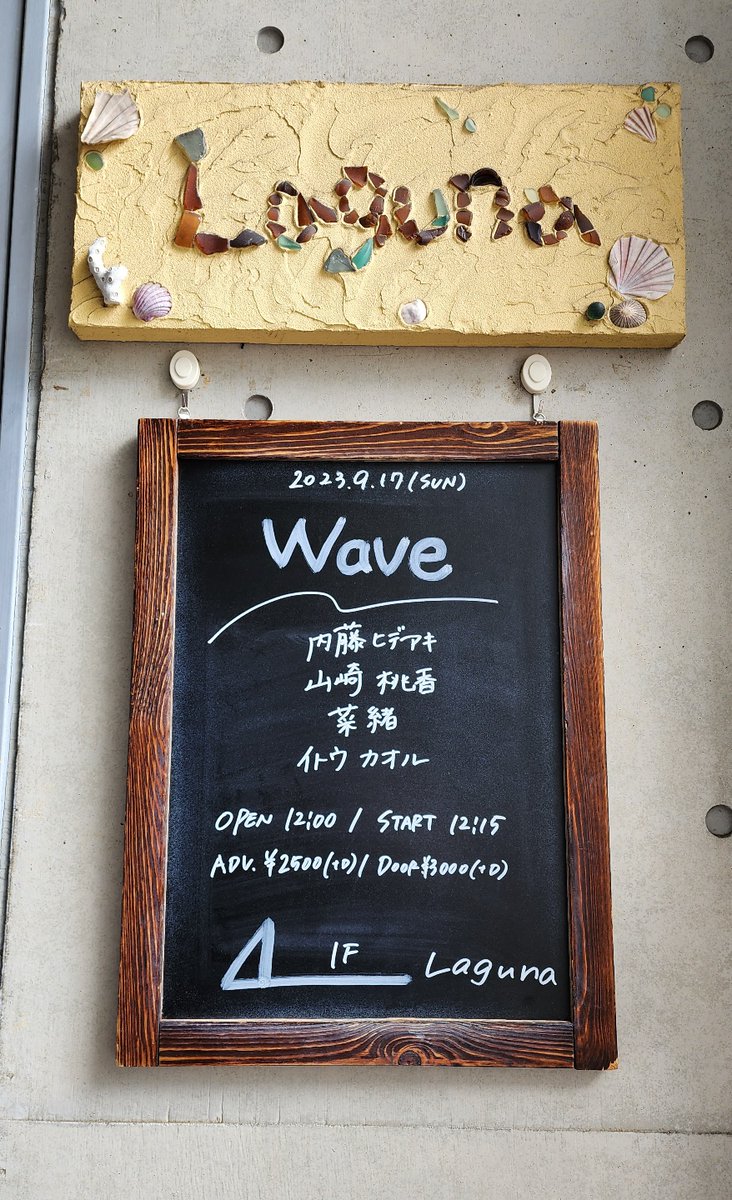 Laguna
2023.9.17(SUN)
Wave
内藤ヒデアキ
山崎 桃香
菜緒
イトウ カオル
OPEN 12:00 / START 12:15
ADV. ¥2500(+D) / Door ¥3000(+D)
1F Laguna